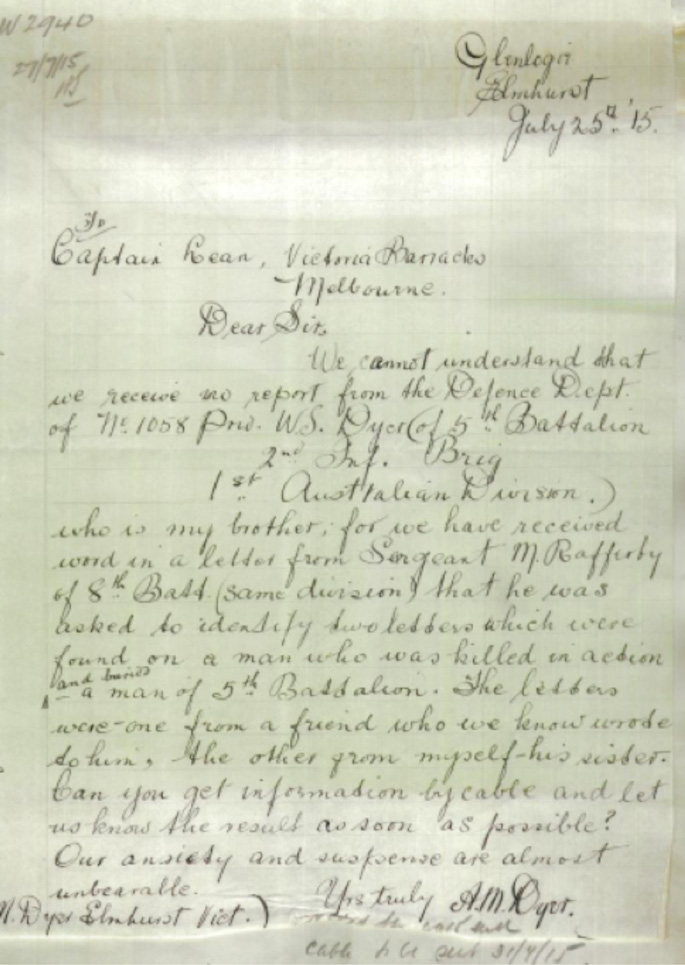 W 2940
27/7/15
Glenlogie
Elmhurst
July 25th '15.
To
Captain Lean, Victoria Barracks
Melbourne.
Dear Sir,
We cannot understand that
we receive no report from the Defence Dept.
of No. 1058 Priv. W.S. Dyer (of 5th Battalion
2nd Inf. Brig
1st Australian Division.)
who is my brother; for we have received
word in a letter from Sergeant M. Rafferty
of 8th Batt. (same division) that he was
asked to identify two letters which were
found on a man who was killed in action
and buried
– a man of 5th Battalion. The letters
were – one from a friend who we know wrote
to him, the other from myself – his sister.
Can you get information by cable and let
us know the result as soon as possible?
Our anxiety and suspense are almost
unbearable.
Yrs truly A.M. Dyer.
Dyer Elmhurst Vict.)
cable to be sent 31/7/15